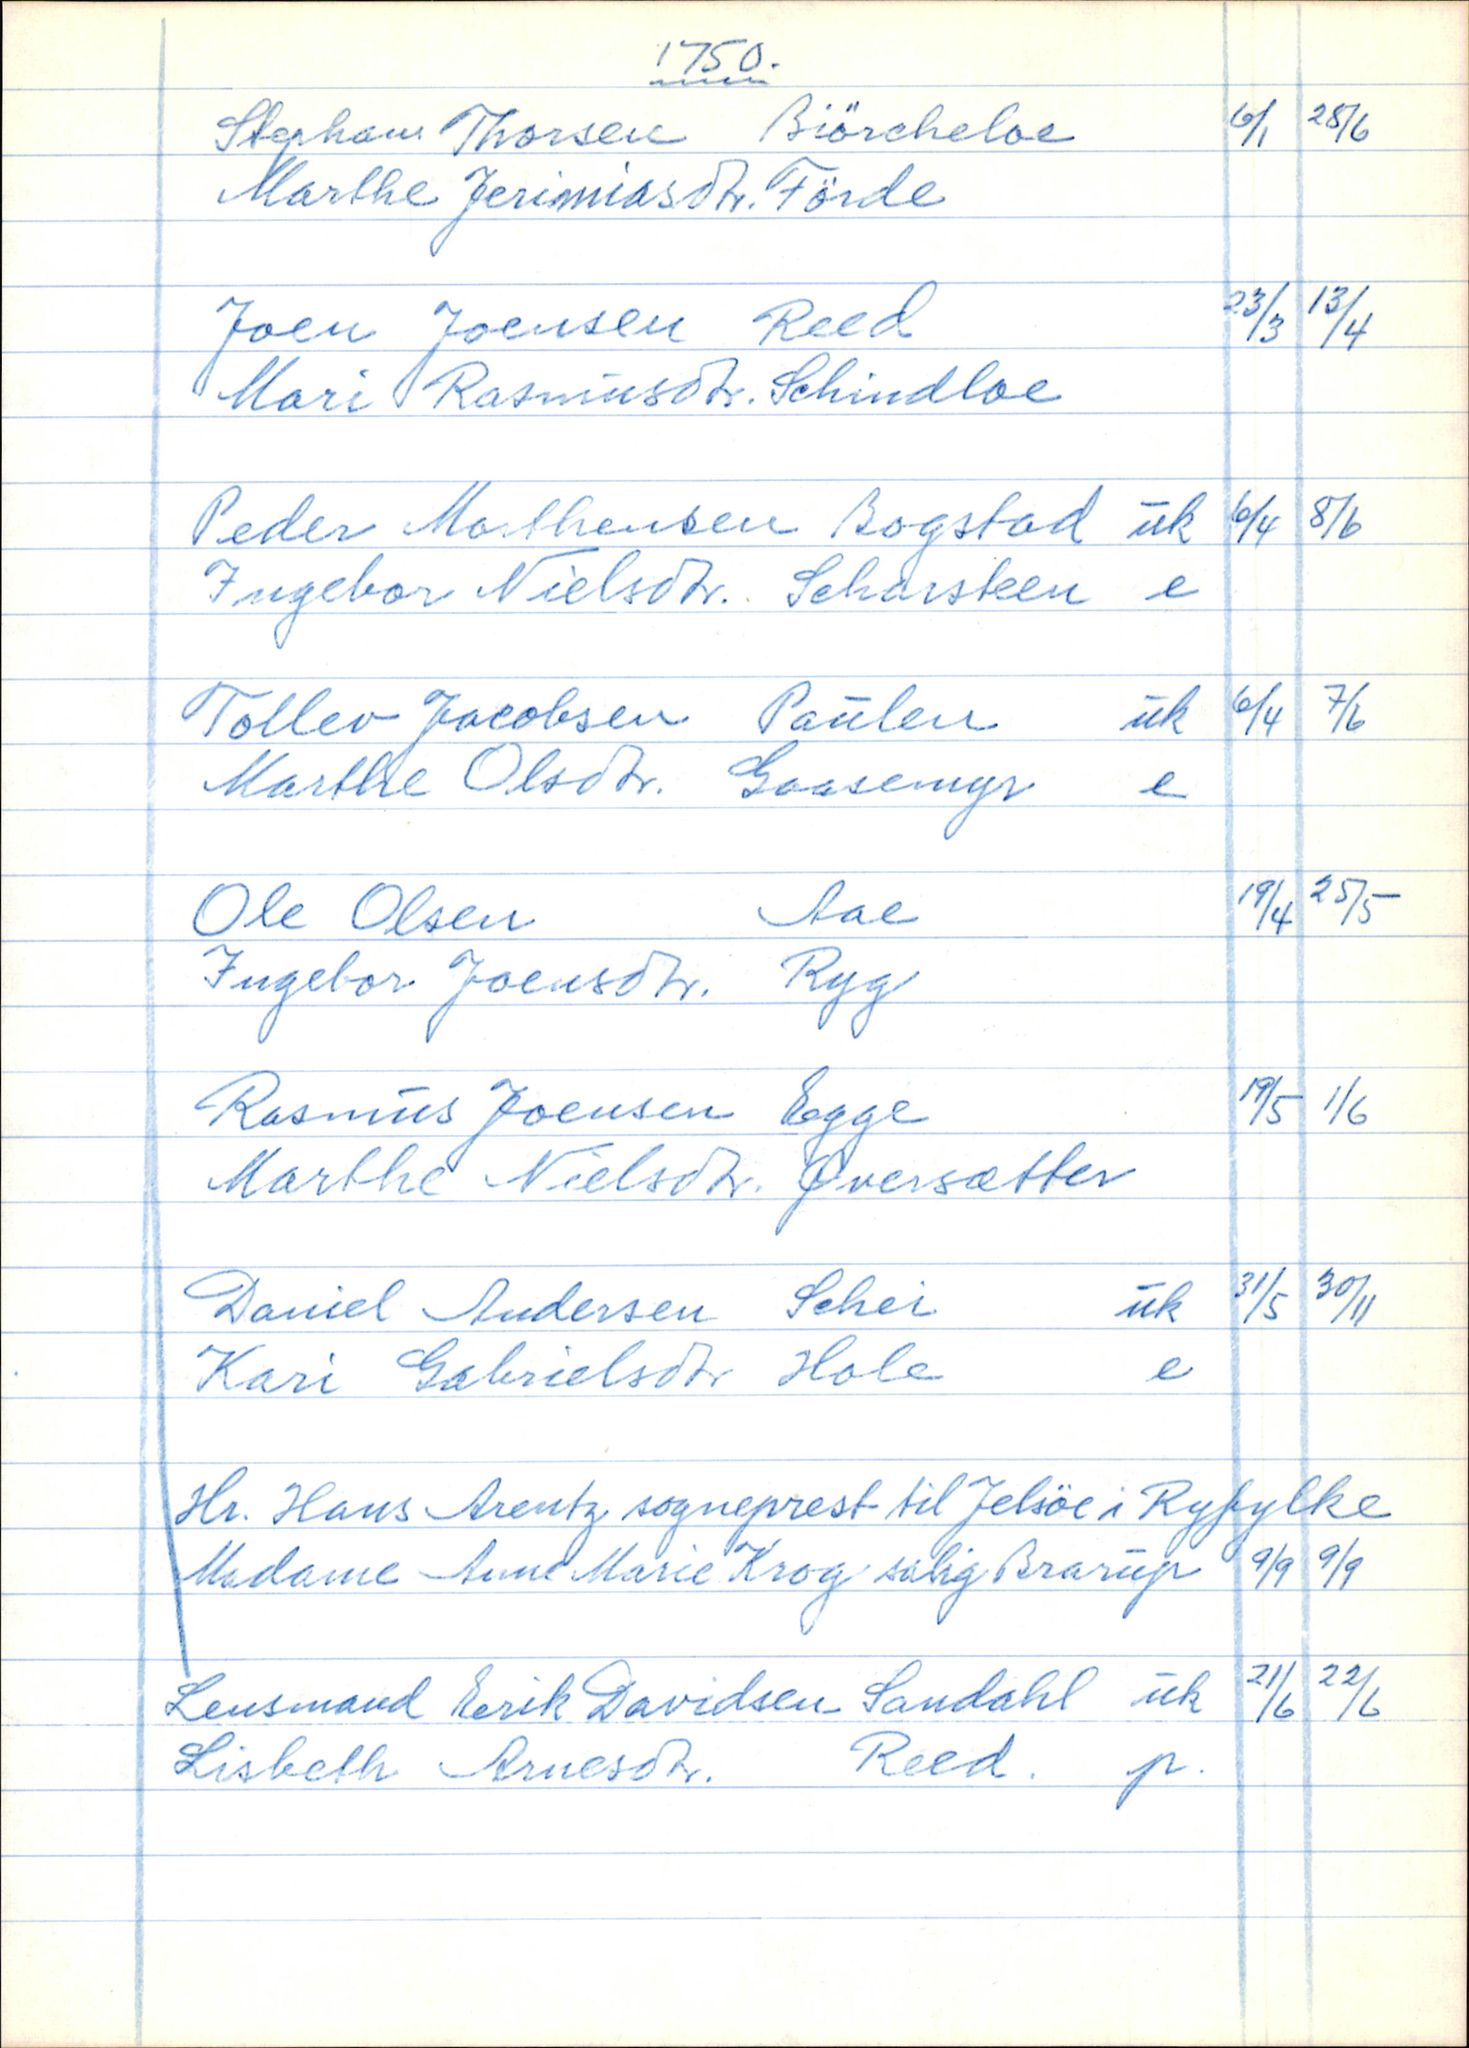 1750.
Stephan Thorsen Biörcheloe 6/1 28/6
Marthe Jerimiasdtr. Förde
Joen Joensen Reed 23/3 13/4
Mari Rasmusdtr. Schindloe
Peder Mathensen Bogstad uk 6/4 8/6
Ingebor Nielsdtr. Scharsteen e
Tollev Jacobsen Paulen uk 6/4 7/6
Marthe Olsdtr. Gaasemyr e
Ole Olsen Aae 19/4 25/5
Ingebor Joensdtr. Ryg
Rasmus Joensen Egge 19/5 1/6
Marthe Nielsdtr. Øversætter
Daniel Andersen Schei uk 31/5 30/11
Kari Gabrielsdtr Hole e
Hr. Hans Arentz sogneprest til Jelsöe i Ryfylke
Madame Anne Marie Krog salig Brarup 9/9 9/9
Lensmand Eerik Davidsen Sandahl uk 21/6 22/6
Lisbeth Arnesdtr. Reed. p.